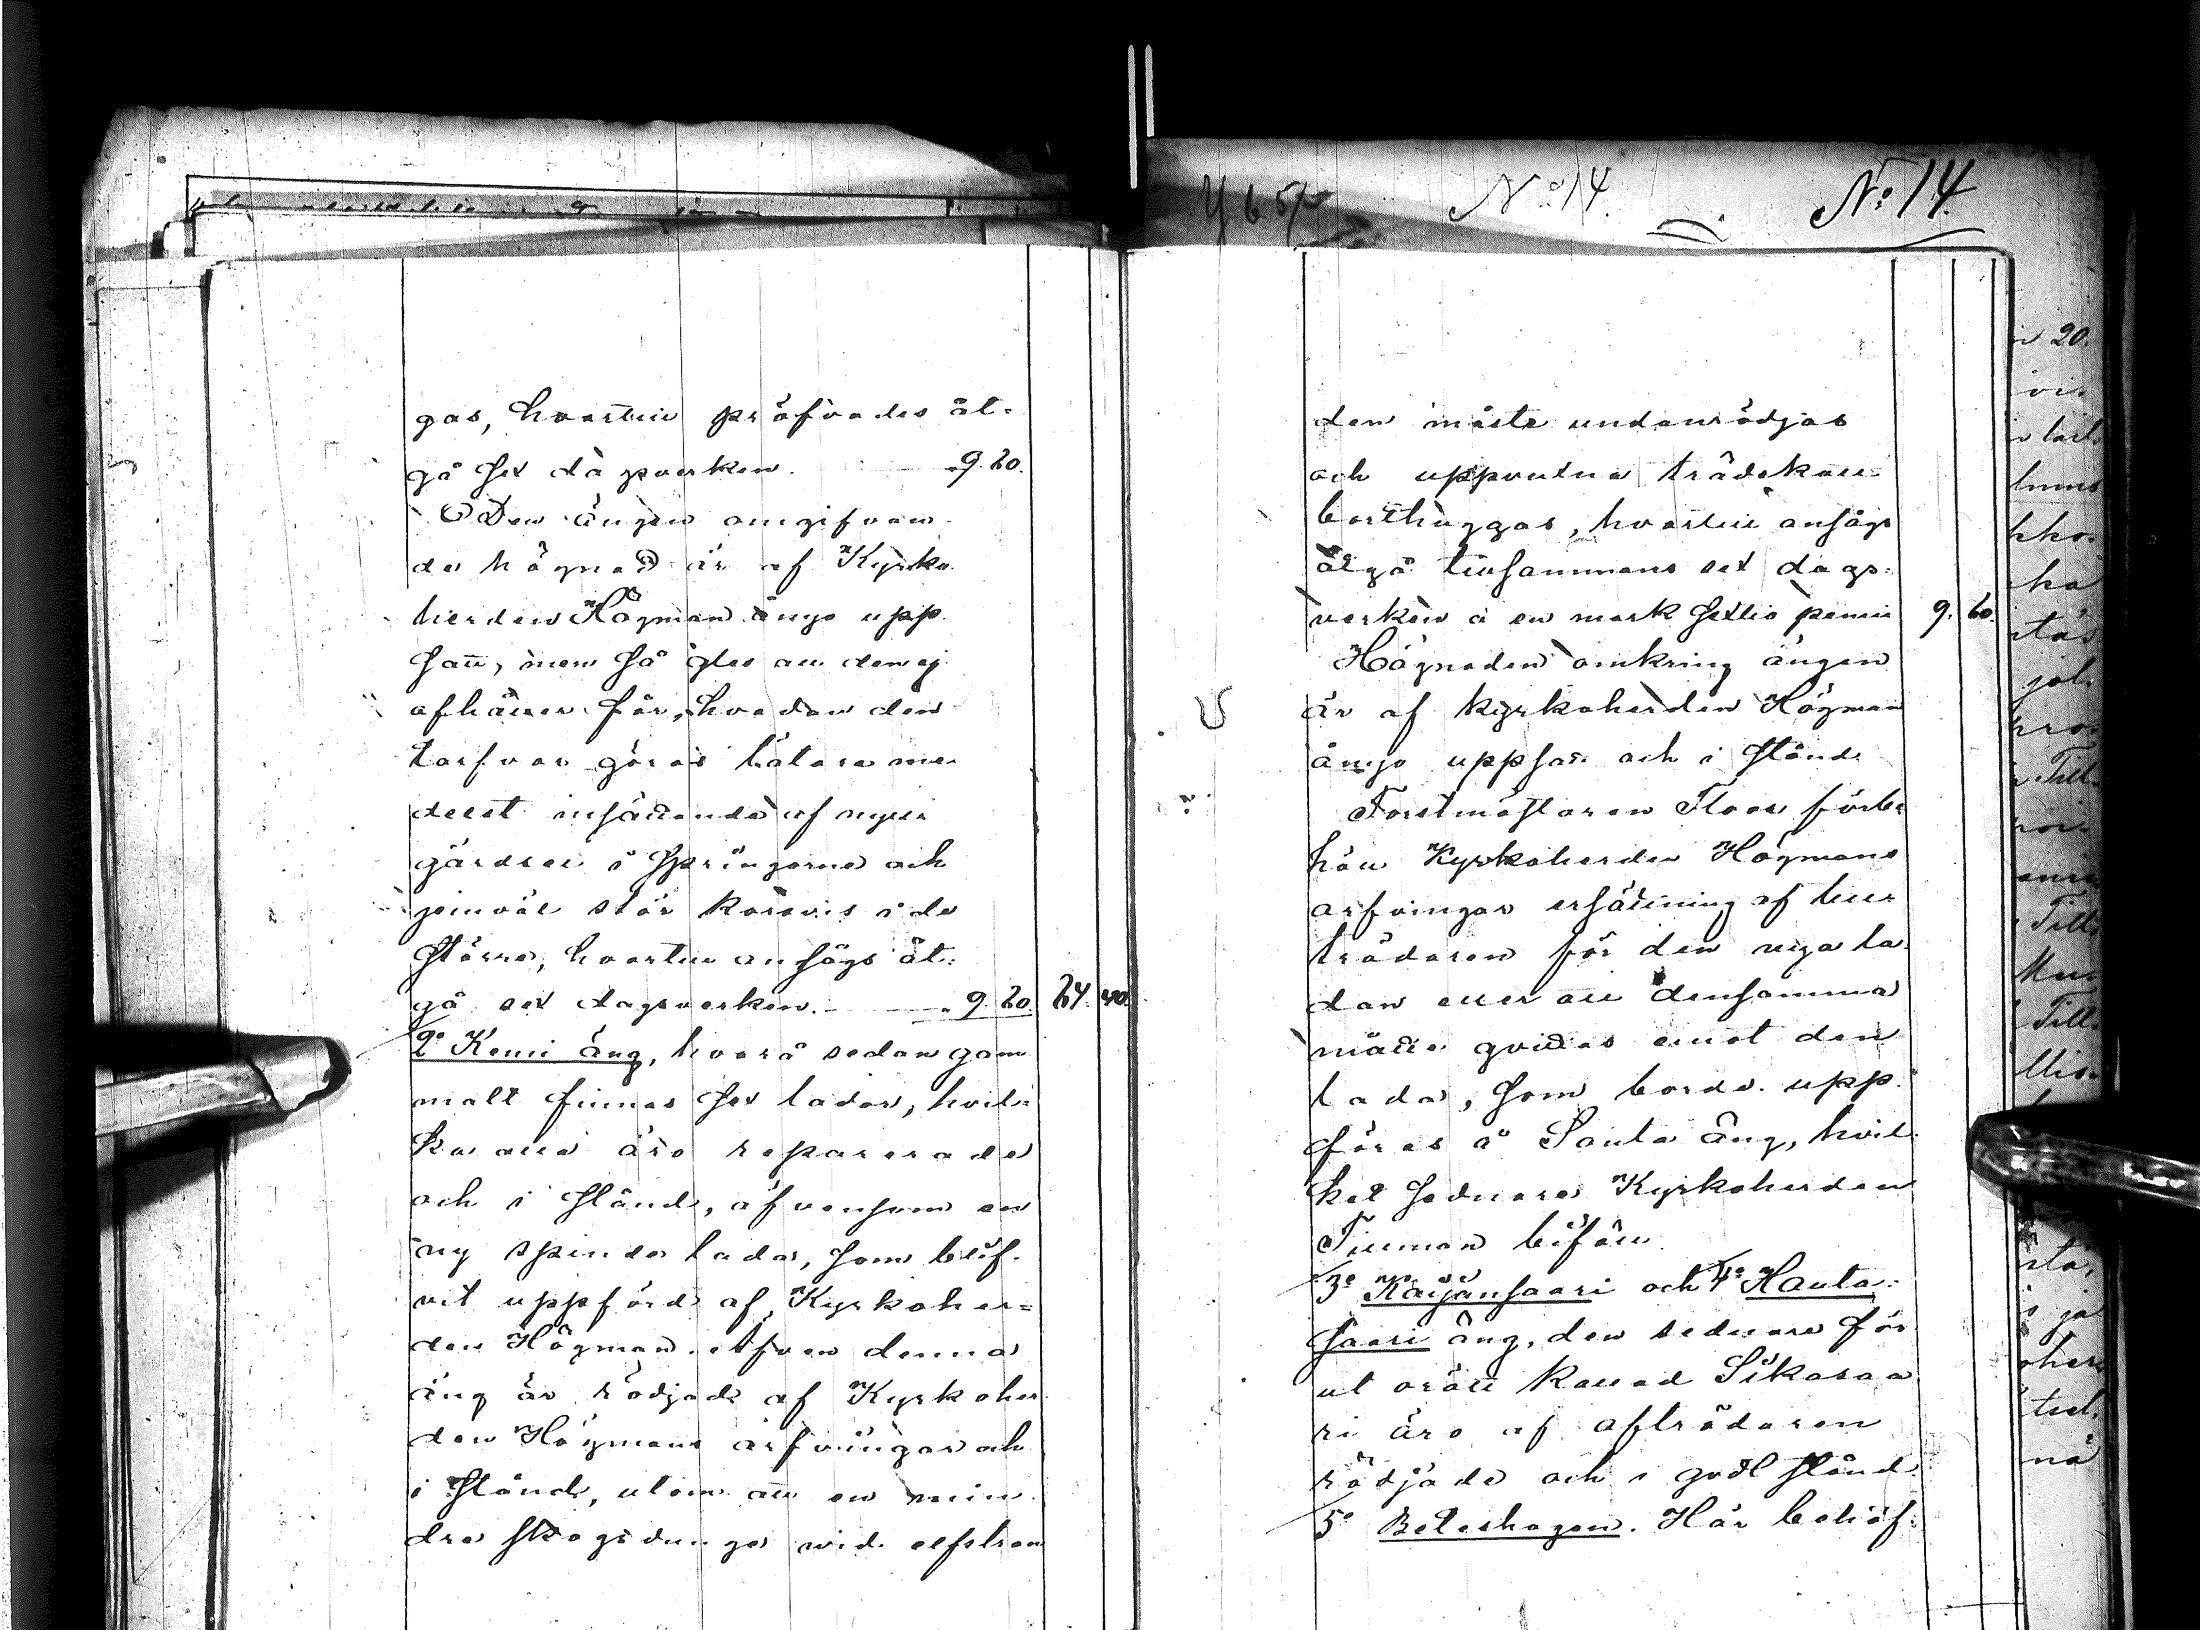 No 14.
No 14.
gas, hvartill pröfvades åt-
gå sex dagsverken. 9. 60.
Den ängen omgifvan-
de högnad är af Kyrko-
herden Högman ånyo upp
satt, men så gles att den ej
afhåller får, hvadan den
tarfvar göras tätare me-
delst insättande af nyen
gärdsel i springorna och
jemväl stör korsvis i de
större, hvartill ansågs åt-
gå sex dagsverken. 9. 60. 64. 40.
2o Kemi äng, hvarå sedan gam
malt finnas sex lador, hvil-
ka alla äro reparerade
och i stånd, äfvensom en
ny spinde lada, som blif-
vit uppförd af Kyrkoher-
den Högman. Äfven denna
äng är rödjad af Kyrkoher
den Högmans arfvingar och
i stånd, utom att en min
dre skogsdunge vid elfstran
den måste undanrödjas
och uppvutna trädskott
borthuggas, hvartill ansågs
åtgå tillsammans sex dags-
verken á en mark sextio penni 9. 60.
Högnaden omkring ängen
är af kyrkoherden Högman
ånyo uppsatt och i stånd.
Forstmästaren Floor förbe
höll Kyrkoherden Högmans
arfvingar ersättning af till-
trädaren för den nya la-
dan eller att densamma
måtte qvittas emot den
lada, som borde upp-
föras å Santa äng, hvil-
ket sednare Kyrkoherden
Tillman biföll.
3o Karjansaari och 4o Hauta-
saari äng, den sednare för
ut orätt kallad Sikasaa
ri äro af afträdaren
rödjade och i godt stånd.
5o Beteshagen. Här behöf-